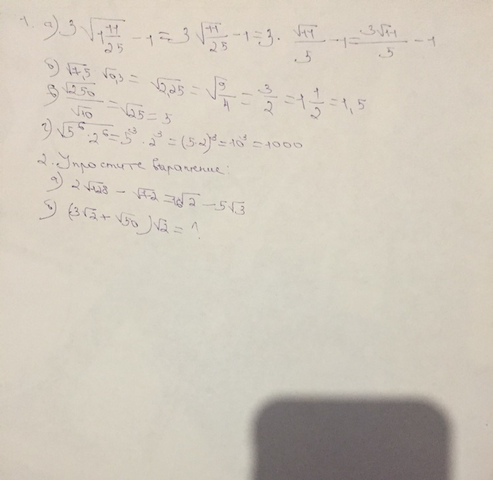 1. а) 3√1 11/25 - 1 = 3√11/25 - 1 = 3 · √11/5 - 1 = 3√11/5 - 1
б) √7,5 √0,3 = √2,25 = √9/4 = 3/2 = 1 1/2 = 1,5
в) √250/√10 = √25 = 5
г) √5⁶·2⁶ = 5³ · 2³ = (5·2)³ = 10³ = 1000
2. Упростите выражение:
а) 2√128 - √72 = 16√2 - 5√3
б) (3√2 + √50)√2 = ?